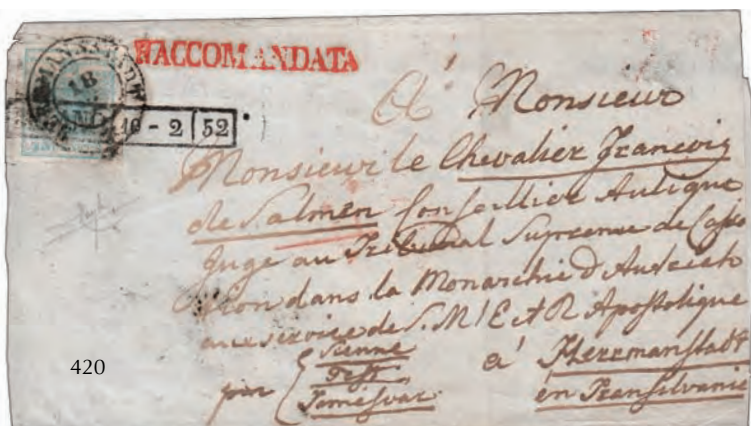 HERMANNSTADT
18
RACCOMANDATA
10 - 2 | 52
A' Monsieur
Monsieur le Chevalier François
de Salmen Conseillier Aulique
Juge au Tribunal Supreme de Cassa
tion dans la Monarchie d'Autrich
au service de S. M I E et R Apostolique
par Vienne a' Herrmanstadt
Pest
Temesvar en Transilvanie
420